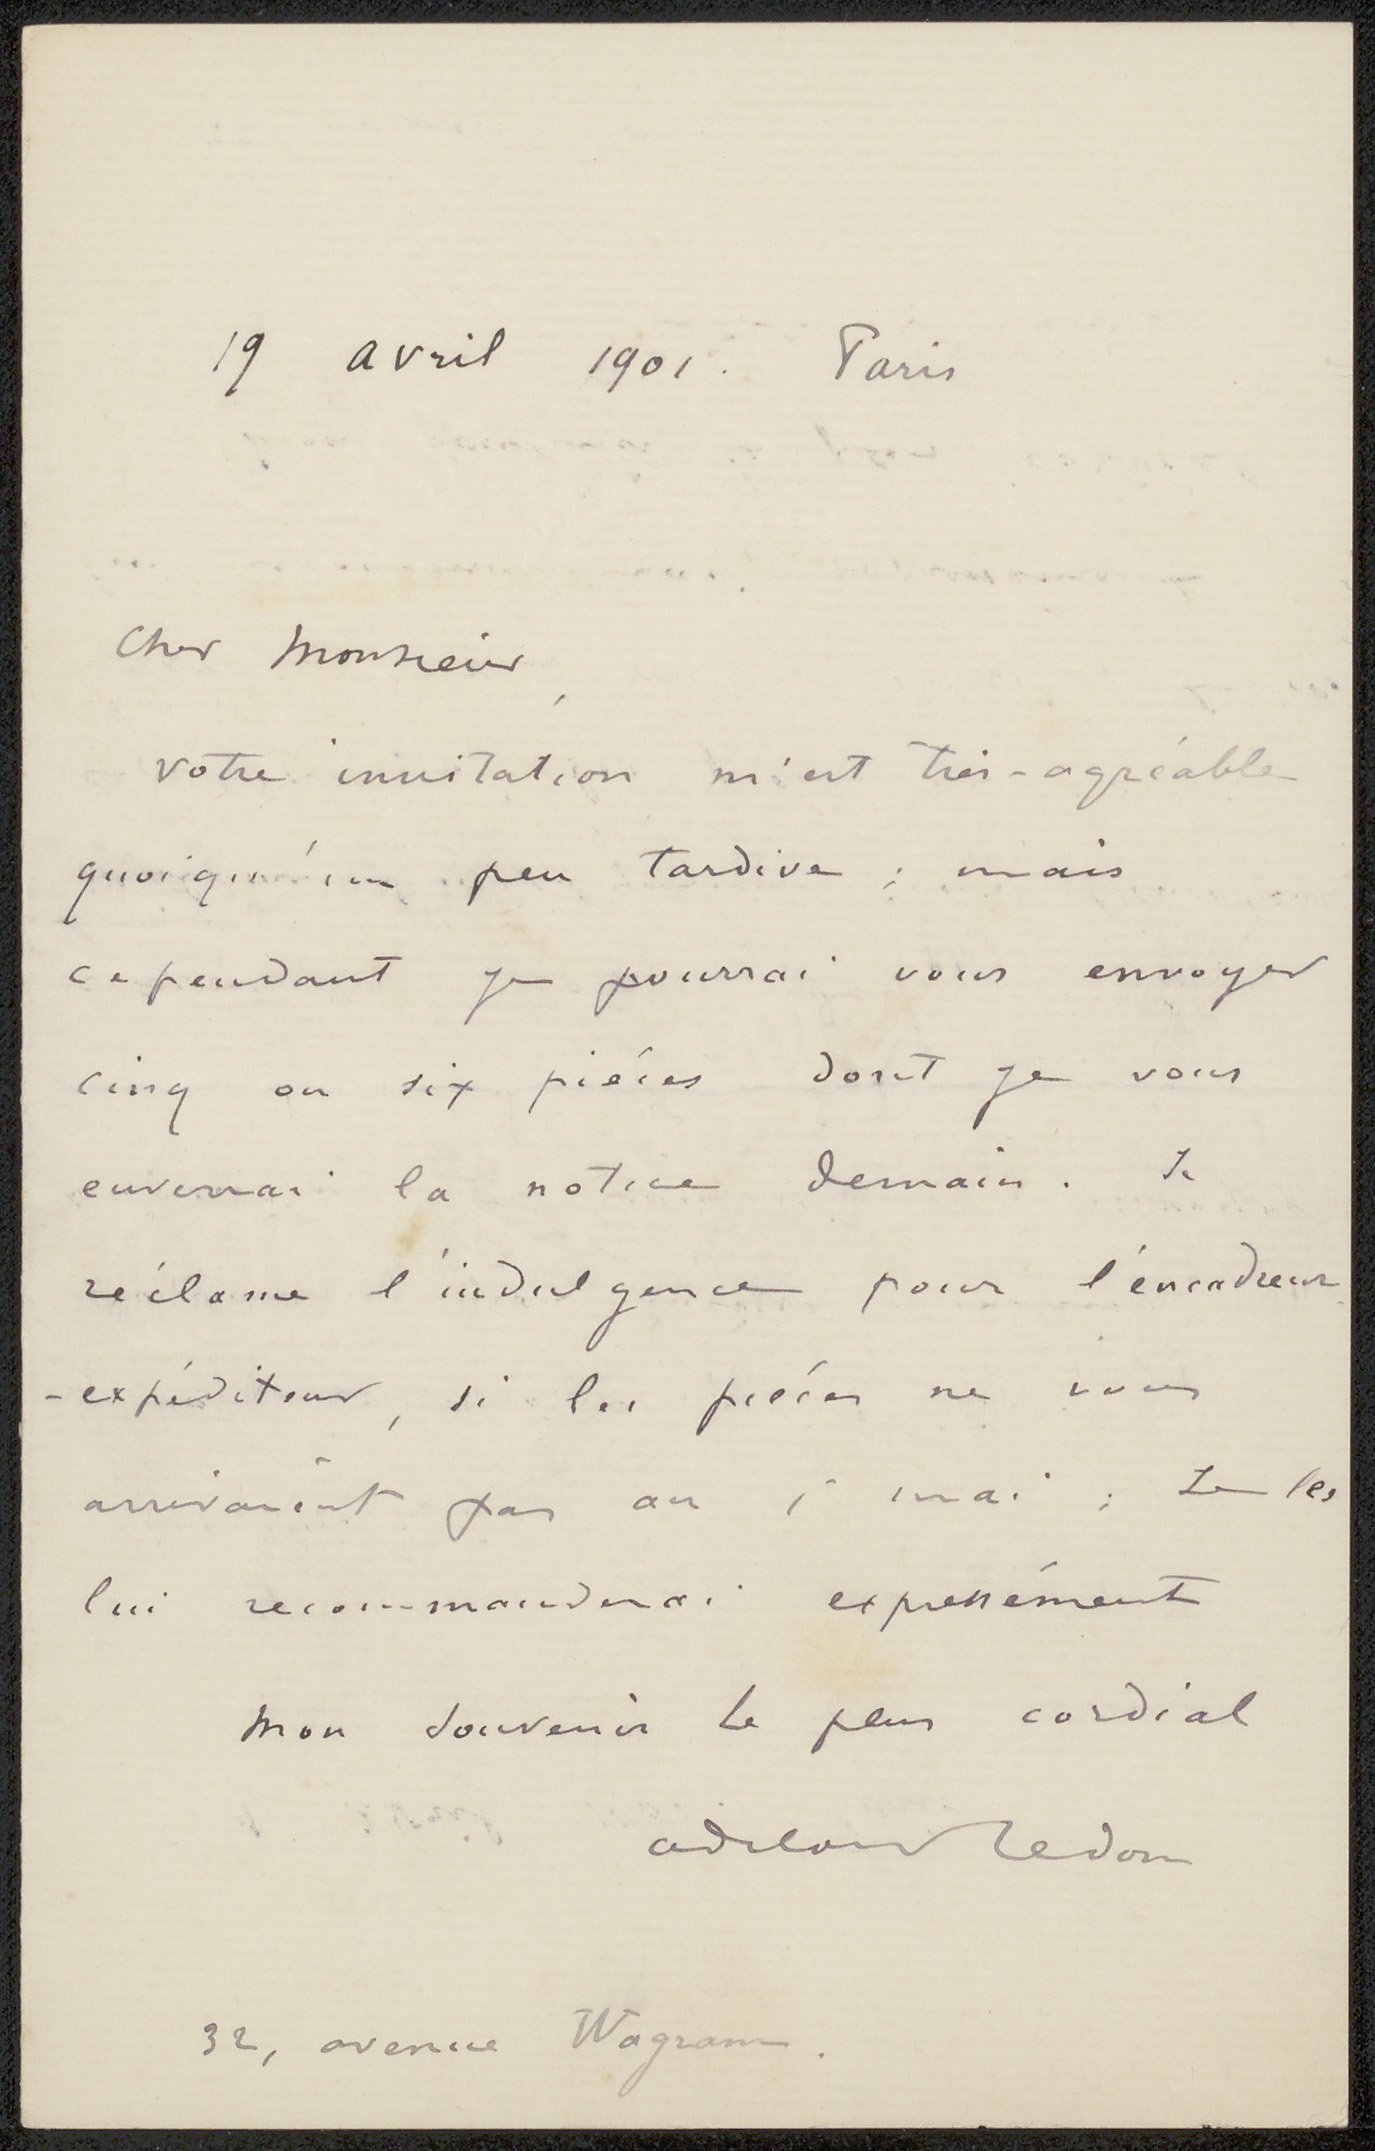 19 avril 1901. Paris
Cher Monsieur,
votre invitation m'est très-agréable
quoiqu'un peu tardive ; mais
cependant je pourrai vous envoyer
cinq ou six pièces dont je vous
enverrai la notice demain. Je
réclame l'indulgence pour l'encadreur
-expéditeur, si les pièces ne vous
arrivaient pas au mai ; Je les
lui recommanderai expressément
Mon souvenir le plus cordial
odilon Redon
32, avenue Wagram.